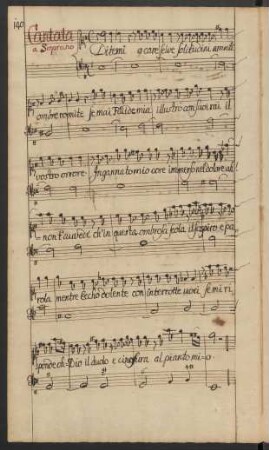 140
Cantata
a Soprano
Ditemi o care selve solitudini amate
ombre romite se mai Fillide mia illustrò con suoi rai il
vostro orrore. Ingannato mio core immerso nel dolore ah
non t'auvedi ch'in questa ombrosa sola il sospiro e pa
rola mentre l'echo dolente con interrotte voci se mi ri
ponde ch Dio il duolo e al pianto mi-o